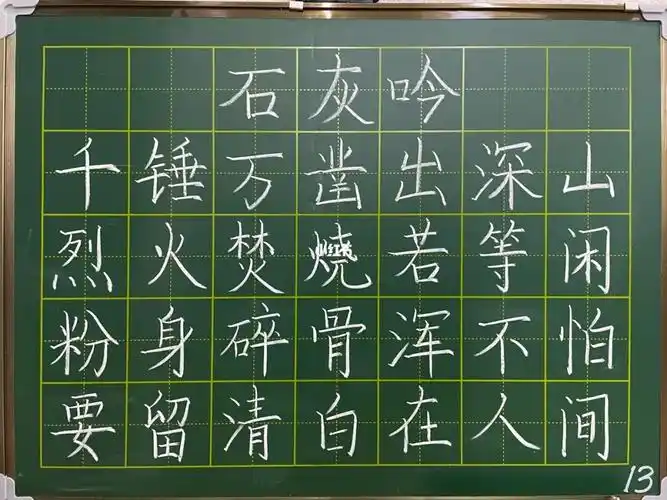 石灰吟
千锤万凿出深山
烈火焚烧若等闲
粉身碎骨浑不怕
要留清白在人间
13